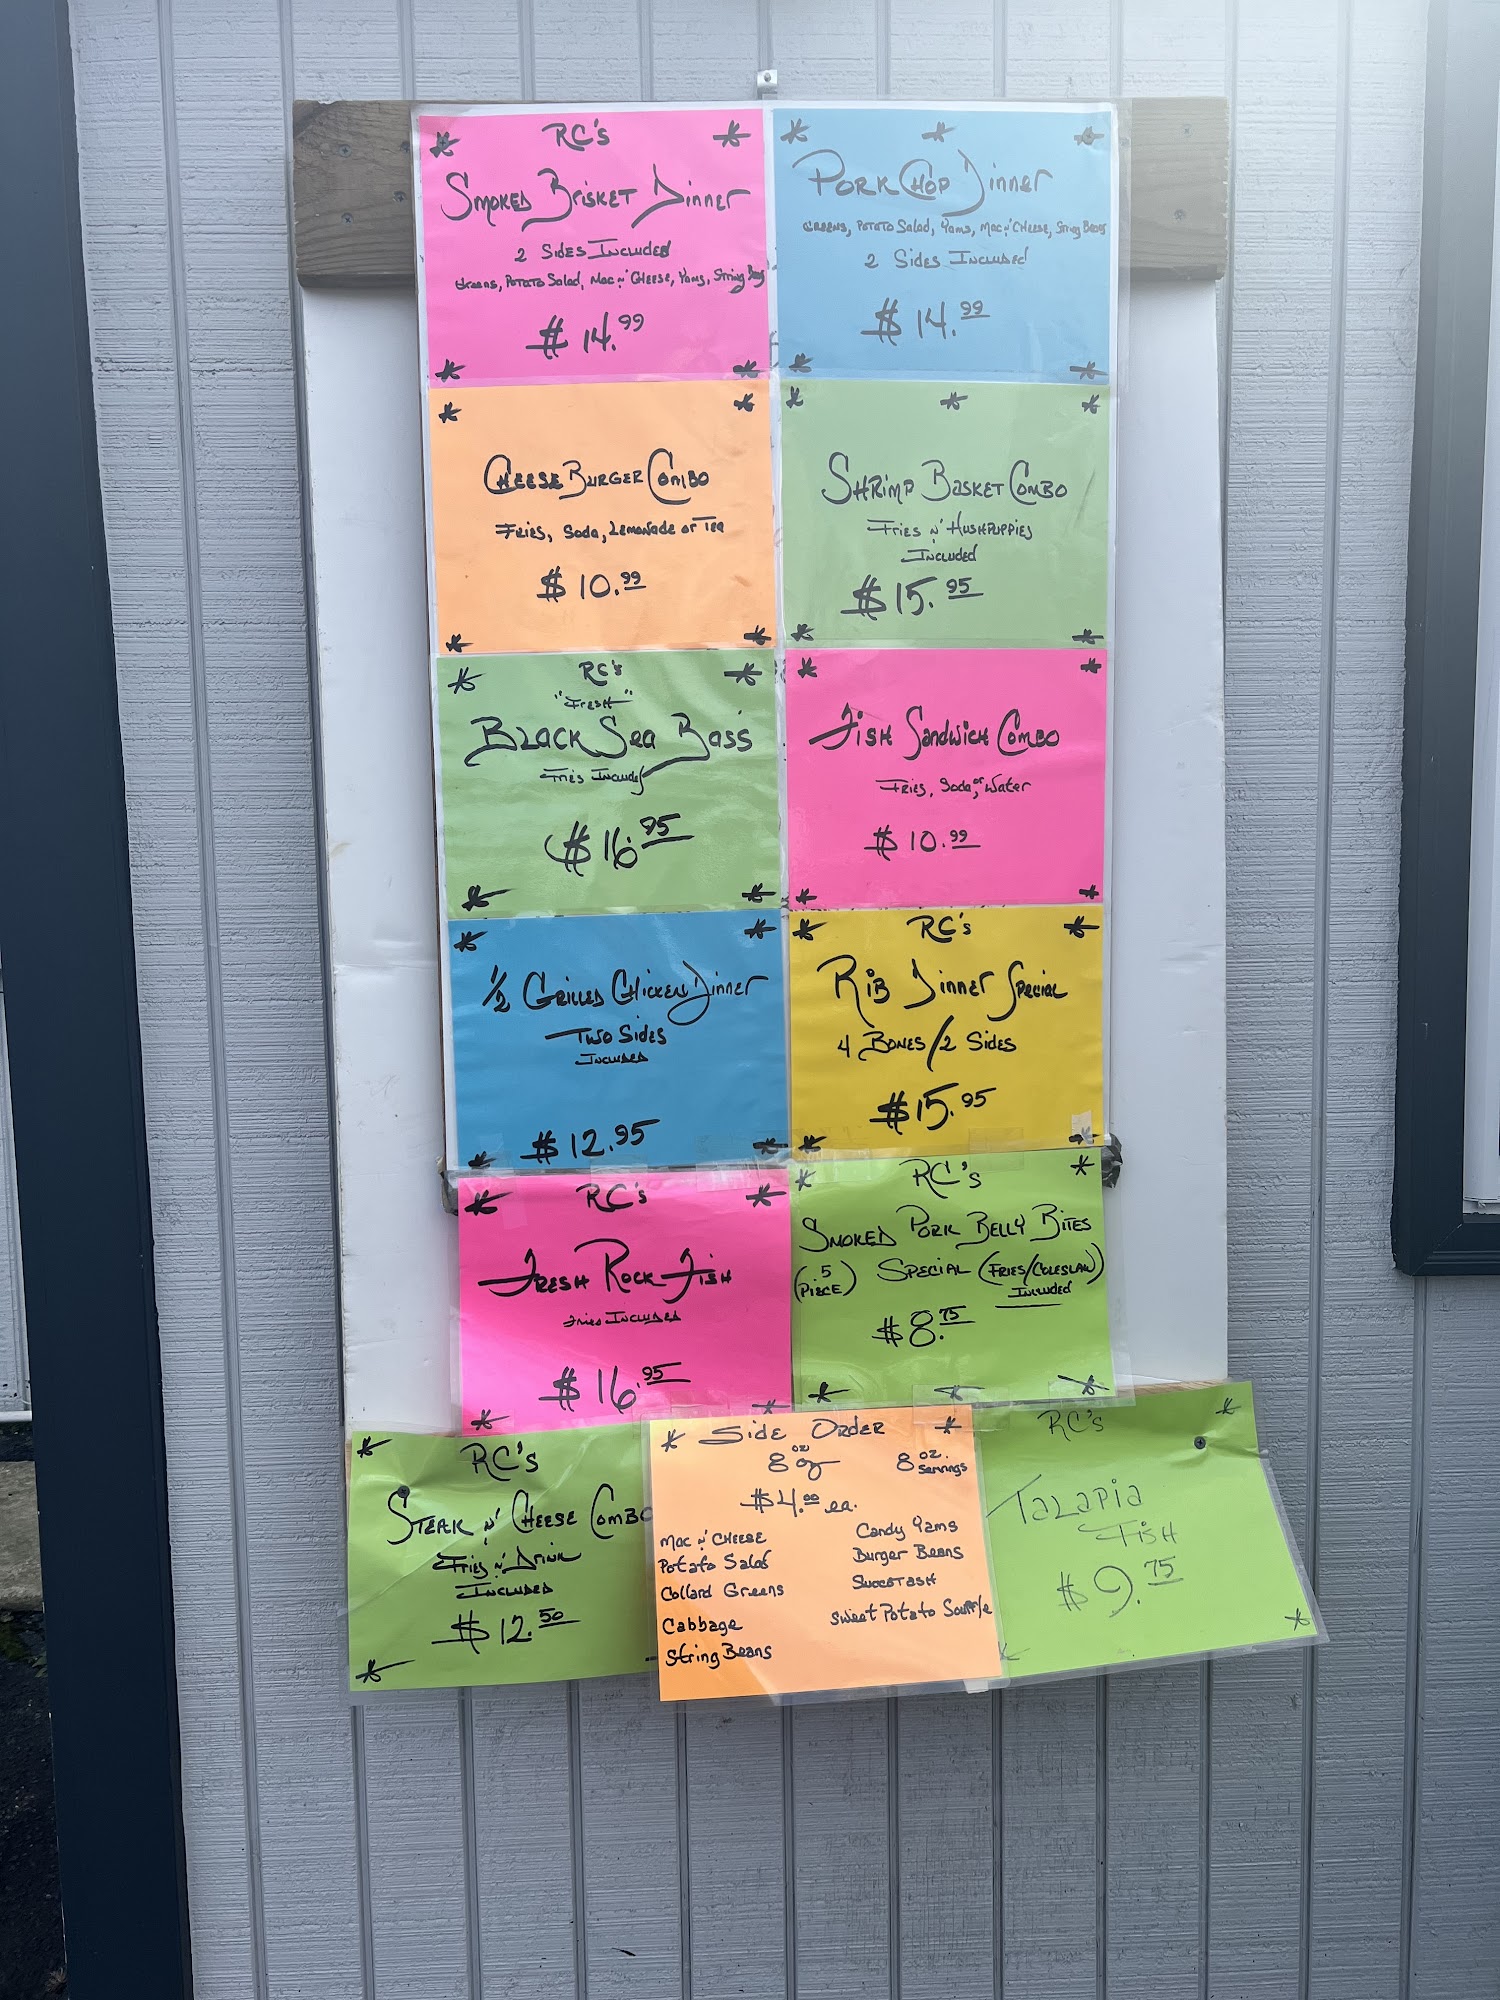 RC's
Smoked Brisket Dinner
2 Sides Included
Greens, Potato Salad, Mac n' Cheese, Yams, String Beans
$14.99
Pork Chop Dinner
Greens, Potato Salad, Yams, Mac n' Cheese, String Beans
2 Sides Included
$14.99
Cheese Burger Combo
Fries, Soda, Lemonade or Tea
$10.99
Shrimp Basket Combo
Fries n' Hushpuppies
Included
$15.95
RC's
"Fresh"
Black Sea Bass
Fries Included
$16.95
Fish Sandwich Combo
Fries, Soda, or Water
$10.99
1/2 Grilled Chicken Dinner
Two Sides
Included
$12.95
RC's
Rib Dinner Special
4 Bones/2 Sides
$15.95
RC's
Fresh Rock Fish
Fries Included
$16.95
RC's
Smoked Pork Belly Bites
(5 Piece) Special (Fries/Coleslaw)
Included
$8.75
RC's
Steak n' Cheese Combo
Fries n' Drink
Included
$12.50
Side Order
8 oz 8 oz. Servings
$4.00 ea.
Mac n' Cheese
Potato Salad
Collard Greens
Cabbage
String Beans
Candy Yams
Burger Beans
Succotash
Sweet Potato Souffle
RC's
Talapia
Fish
$9.75